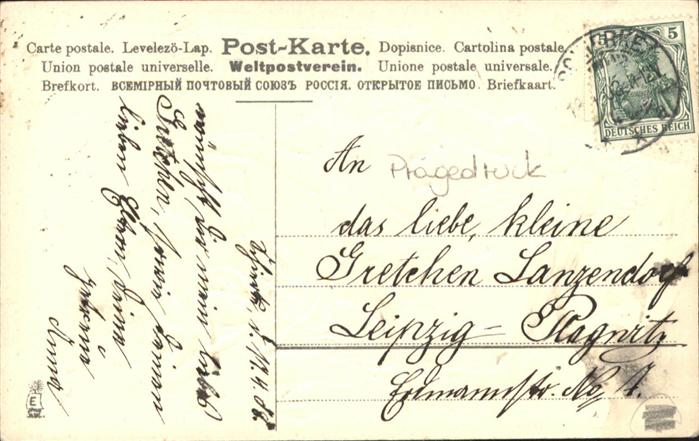 Carte postale. Levelezö-Lap. Post-Karte. Dopisnice. Cartolina postale.
Union postale universelle. Weltpostverein. Unione postale universale.
Brefkort. ВСЕМІРНЫЙ ПОЧТОВЫЙ СОЮЗЪ РОССІЯ. ОТКРЫТОЕ ПИСЬМО. Briefkaart.
5
DEUTSCHES REICH
An
Prägedruck
das liebe, kleine
Gretchen Lanzendorf
Leipzig-Plagwitz
Erdmannstr. No
wünscht Dir mein liebes
Gretchen, sowie Deinen
lieben Eltern, Deine
Anna
E